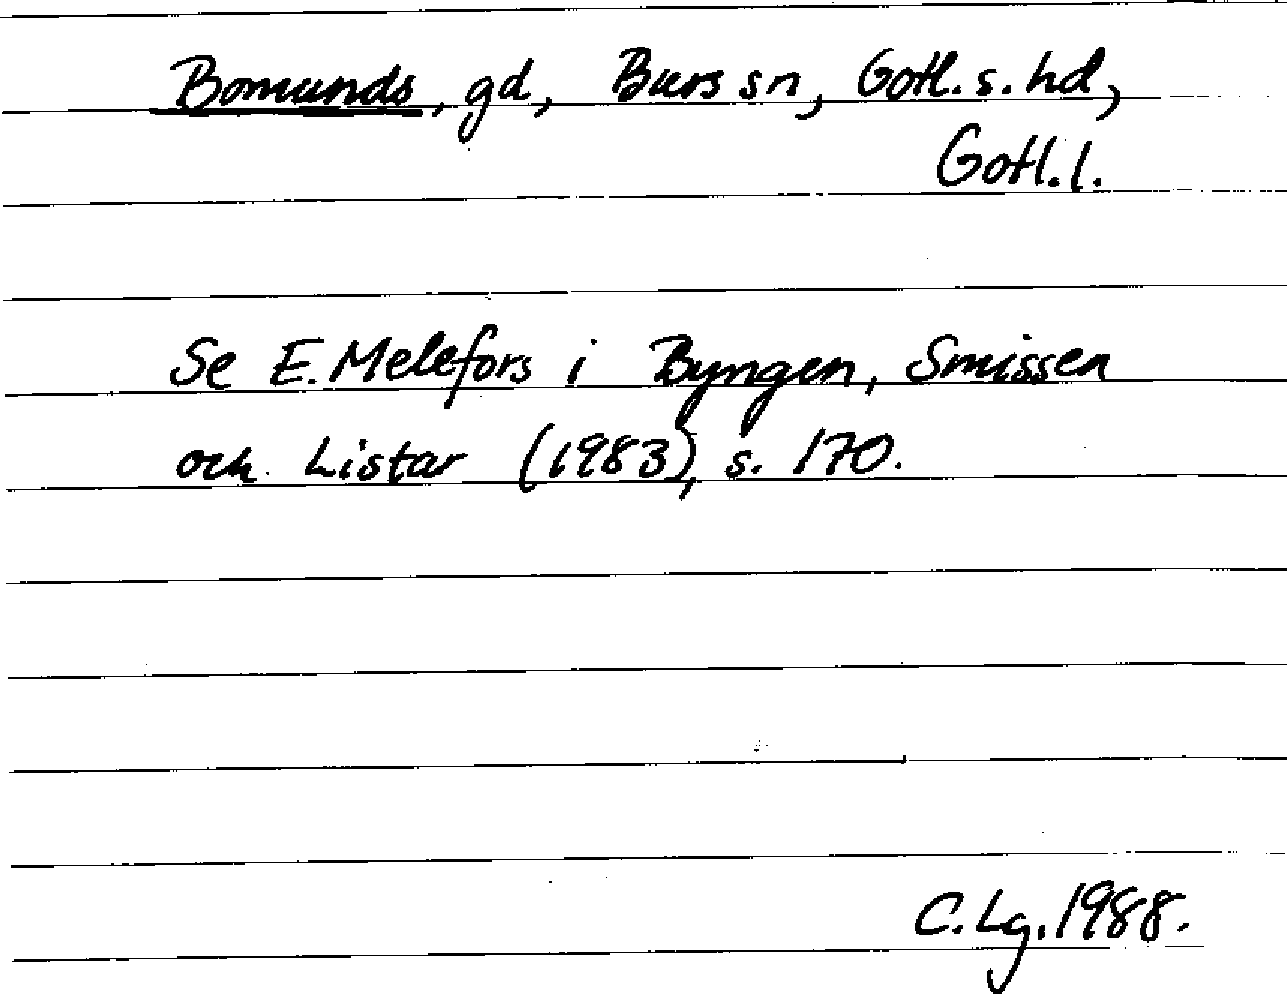 Bomunds, gd, Burs sn, Gotl. s. hd,
Gotl. l.
Se E. Melefors i Byngen, Smissen
och Listar (1983), s. 170.
C. Lg. 1988.